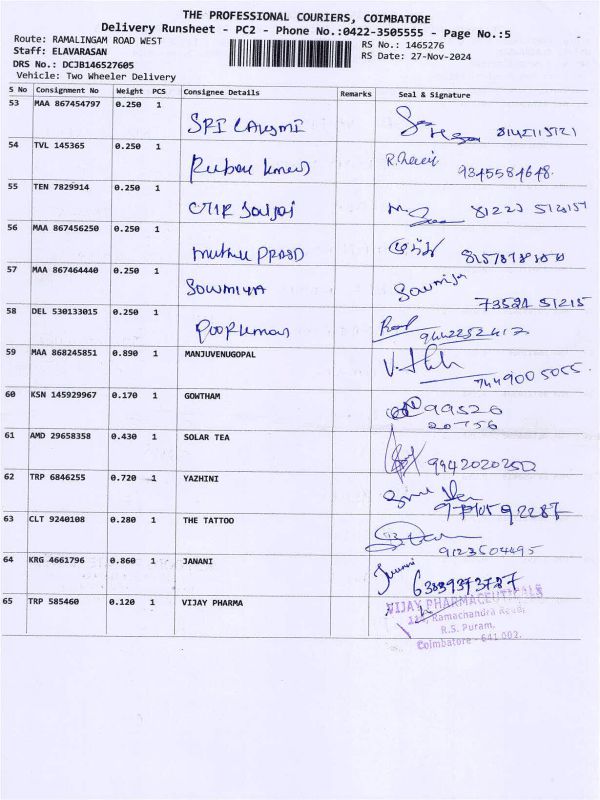 THE PROFESSIONAL COURIERS, COIMBATORE
Delivery Runsheet - PC2 - Phone No.:0422-3505555 - Page No.:5
Route: RAMALINGAM ROAD WEST
RS No.: 1465276
Staff: ELAVARASAN
RS Date: 27-Nov-2024
DRS No.: DCJB146527605
Vehicle: Two Wheeler Delivery
S No Consignment No Weight PCS Consignee Details Remarks Seal & Signature
53 MAA 867454797 0.250 1 SRI LAKSHMI
54 TVL 145365 0.250 1 9345584648.
55 TEN 7829914 0.250 1
56 MAA 867456250 0.250 1 muthu PRASD
57 MAA 867464440 0.250 1 SOWMIYA Sowmiya
73521 51215
58 DEL 530133015 0.250 1
9442252412
59 MAA 868245851 0.890 1 MANJUVENUGOPAL
7449005055.
60 KSN 145929967 0.170 1 GOWTHAM 99526
20756
61 AMD 29658358 0.430 1 SOLAR TEA
9942020250
62 TRP 6846255 0.720 1 YAZHINI
63 CLT 9240108 0.280 1 THE TATTOO
9123504495
64 KRG 4661796 0.860 1 JANANI Janani
6383973787
65 TRP 585460 0.120 1 VIJAY PHARMA VIJAY PHARMACEUTICALS
Ramachandra Road,
R.S. Puram,
Coimbatore - 641 002.